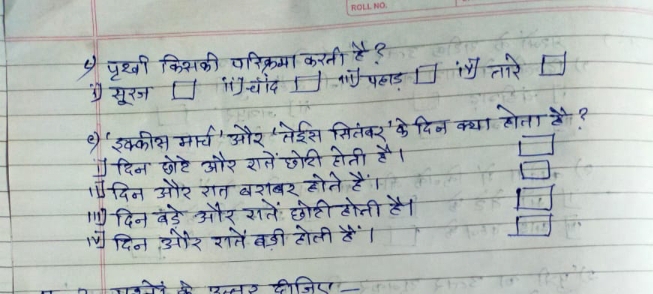 ROLL NO.
५) पृथ्वी किसकी परिक्रमा करती है ?
i) सूरज ii) चाँद iii) पहाड़ iv) तारे
e) 'इक्कीस मार्च' और 'तेईस सितंबर' के दिन क्या होता है ?
i) दिन छोटे और रातें छोटी होती है।
ii) दिन और रात बराबर होते हैं।
iii) दिन बड़े और रातें छोटी होती है।
iv) दिन और रातें बड़ी होती हैं।
प्रश्नों के उत्तर दीजिए —